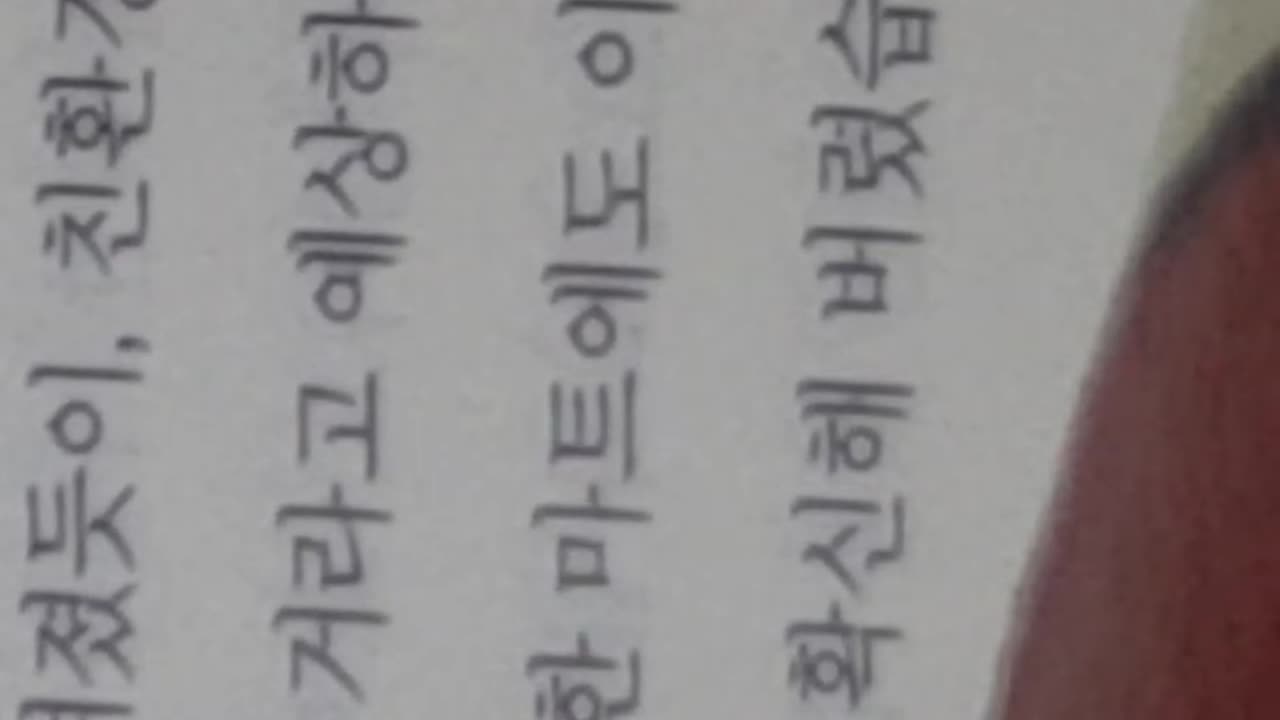 졌듯이, 친환
거라고 예상하
한 마트에도 이
확신해 버렸습